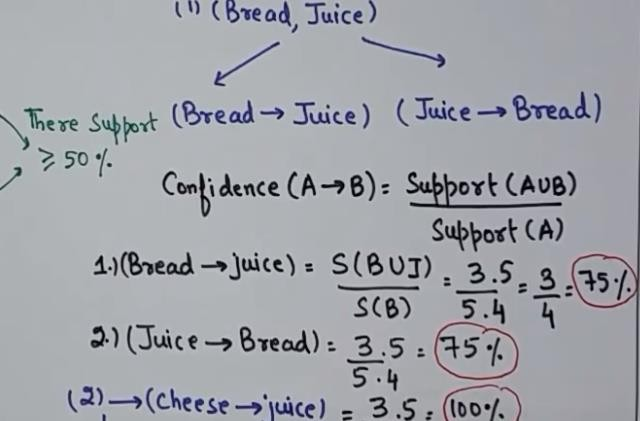 (1) (Bread, Juice)
There Support (Bread → Juice) (Juice → Bread)
≥ 50%
Confidence (A → B) = Support (A∪B)
Support (A)
1.) (Bread → juice) = S(B∪J) = 3.5 = 3 = 75%
S(B) 5.4 4
2.) (Juice → Bread) = 3.5 = 75%
5.4
(2) → (Cheese → juice) = 3.5 = 100%